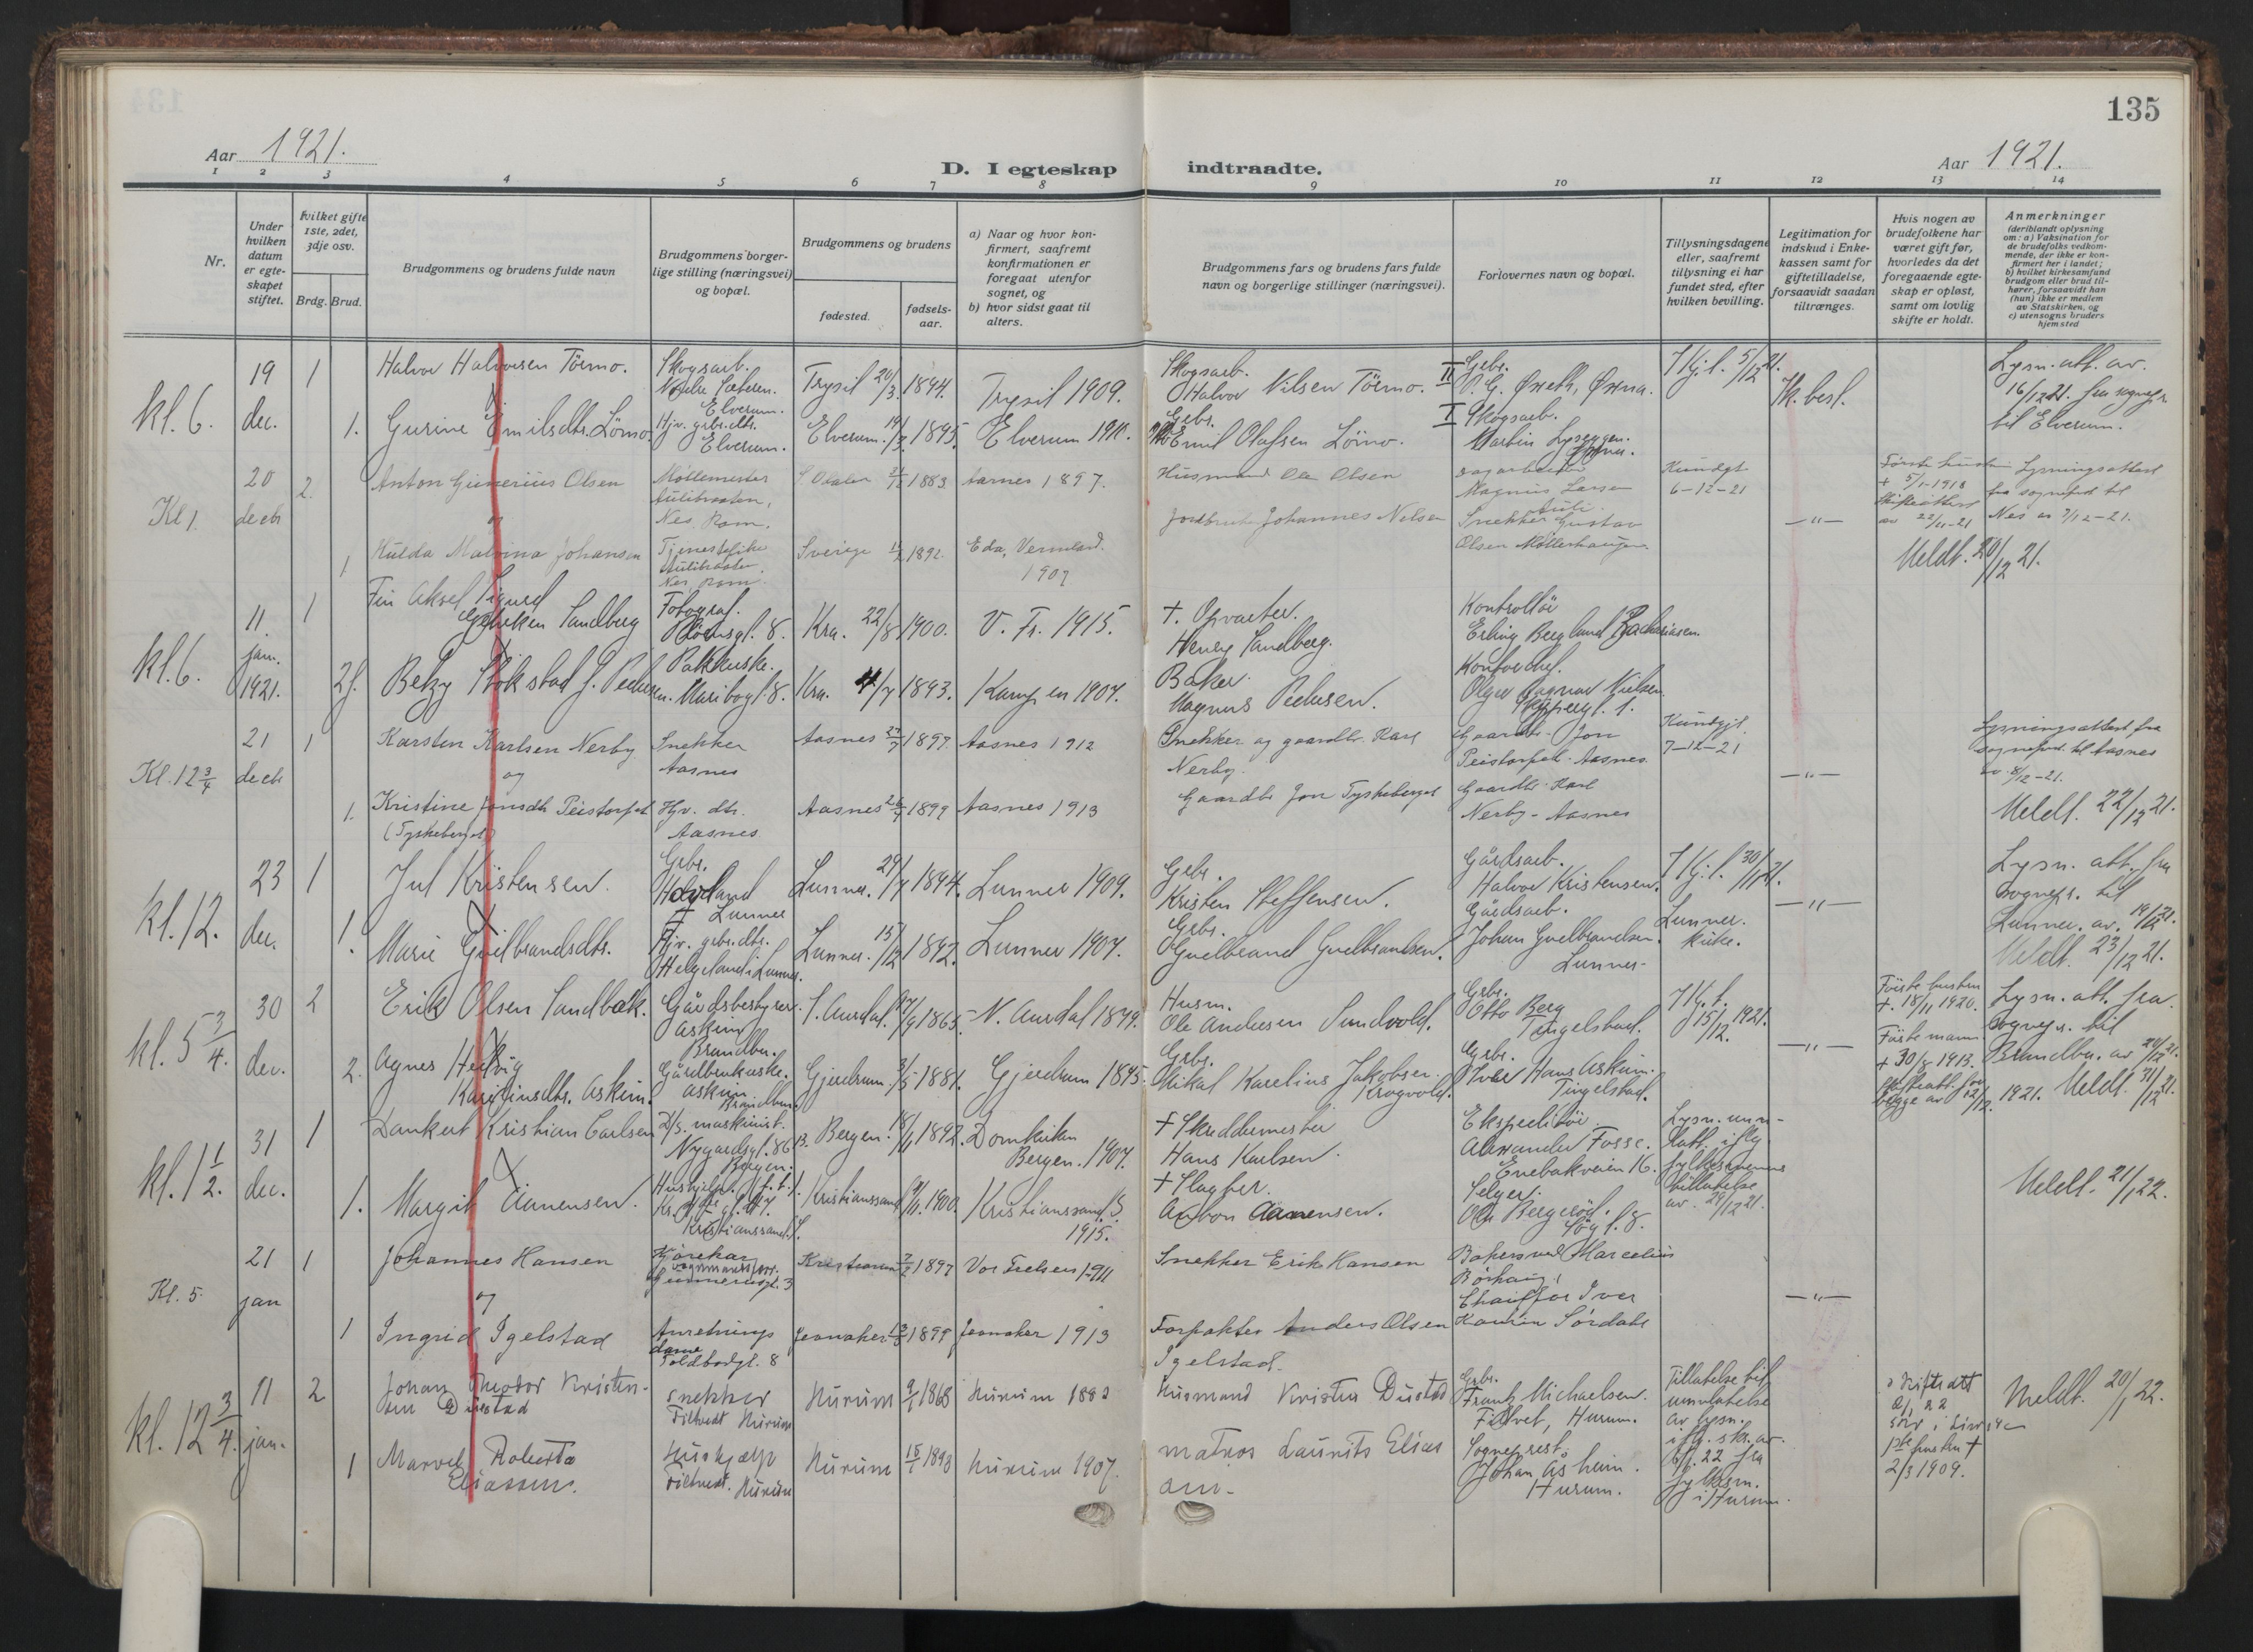 135
Aar 1921.
D. I egteskap indtraadte.
Aar 1921.
1 2 3 4 5 6 7 8 9 10 11 12 13 14
Nr.
Under
hvilken
datum
er egte-
skapet
stiftet.
Hvilket gifte
1ste, 2det,
3dje osv.
Brdg. Brud.
Brudgommens og brudens fulde navn
Brudgommens borger-
lige stilling (næringsvei)
og bopæl.
Brudgommens og brudens
fødested.
fødsels-
aar.
a) Naar og hvor kon-
firmert, saafremt
konfirmationen er
foregaat utenfor
sognet, og
b) hvor sidst gaat til
alters.
Brudgommens fars og brudens fars fulde
navn og borgerlige stillinger (næringsvei).
Forlovernes navn og bopæl.
Tillysningsdagene
eller, saafremt
tillysning ei har
fundet sted, efter
hvilken bevilling.
Legitimation for
indskud i Enke-
kassen samt for
giftetilladelse,
forsaavidt saadan
tiltrænges.
Hvis nogen av
brudefolkene har
været gift før,
hvorledes da det
foregaaende egte-
skap er opløst,
samt om lovlig
skifte er holdt.
Anmerkninger
(deriblandt oplysning
om: a) Vaksination for
de brudefolks vedkom-
mende, der ikke er kon-
firmert her i landet;
b) hvilket kirkesamfund
brudgom eller brud til-
hører, forsaavidt han
(hun) ikke er medlem
av Statskirken, og
c) utensogns bruders
hjemsted
kl. 6.
19
dec.
1
Halvor Halvorsen Törmo.
Skogsarb.
Elverum.
Trysil 20/3 1894.
Trysil 1909.
Skogsarb.
Halvor Nilsen Törmo.
II Grbr.
O. G. Øxeth, Øxna.
7 Kj. l. 5/12 21.
Sk. best.
Lysn. att. av.
16/12 21. fra sognepr.
til Elverum.
1.
Gurine Emilsdtr. Lömo.
Hjv. grbr. dtr.
Elverum.
Elverum. 19/3 1895.
Elverum 1911.
Grbr.
Emil Olafsen Lömo.
I Skogsarb.
Martin Lyseggen.
Kl 1.
20
decbr
2.
Anton Gunerius Olsen
og
Møllemester
Aulibraaten,
Nes, Rom.
S. Odalen 1883.
Aarnes 1897.
Husmand Ole Olsen
Sagarbeider
Magnus Larsen
Auli.
Kundgt
6-12-21
-"-
Første hustru
+ 5/1-1918
Skifteattest
av 22/11-21
Lysningsattest
fra sogneprst til
Nes av 7/12-21.
1
Hulda Malvina Johansen
Tjenestepike
Aulibraaten.
Nes Rom.
Sverige 1892.
Eda, Vermland.
1907
Jordbruker Johannes Nilsen
Snekker Gustav
Olsen Møllerhaugen.
Meldt. 20/12 21.
kl. 6.
11.
jan.
1921.
1
Fin Aksel Sigurd
Sandberg
Fotograf.
Kra. 22/8 1900.
V. Fr. 1915.
+. Opvarter.
Henry Sandberg.
Kontrollör
Erling Bergland Zachariasen.
2f.
Betzy Stökstad f. Pedersen.
Pakkerske.
Maribogt. 8.
Kra. 4/7 1893.
Kampen 1907.
Baker.
Magnus Pedersen.
Kontorchef.
Olger Ragnar Nielsen.
Skippergt. 1.
Kl. 12 3/4
21
decbr
1
Karsten Karlsen Nerby
og
Snekker
Aasnes
Aasnes 1897.
Aasnes 1912
Snekker og gaardbr. Karl
Nerby.
Gaardbr. Jon
Peistorpet. Aasnes.
Kundgjt.
7-12-21
-"-
Lysningsattest fra
sogneprst. til Aasnes
av 8/12-21.
Meldt. 22/12 21.
1.
Kristine Jonsdtr Peistorpet
(Tyskeberget)
Hjv. dtr.
Aasnes
Aasnes 1899
Aasnes 1913
Gaardbr Jon Tyskeberget
Gaardbr. Karl
Nerby - Aasnes
kl. 12.
23
dec.
1
Jul Kristensen.
Grbr.
Lunner
Lunner. 29/7 1894.
Lunner 1909.
Grbr.
Kristen Steffensen.
Gårdsarb.
Halvor Kristensen.
7 Kj. l. 30/11 21.
-"-
Lysn. att. fra
sognepr. til
Lunner. av. 19/12 21.
Meldt. 23/12 21.
1.
Marie Gulbrandsdtr.
Hjv. grbr. dtr.
Helgeland i Lunner.
Lunner. 15/12 1892.
Lunner 1907.
Grbr.
Gulbrand Gulbrandsen.
Gårdsarb.
Johan Gulbrandsen.
Lunner.
Lunner.
kirke.
kl. 5 3/4.
30
dec.
2
Erik Olsen Sandbæk.
Gårdsbestyrer.
Askim
Brandbu.
S. Aurdal. 17/9 1865.
N. Aurdal 1879.
Husm.
Ole Andersen Sundvold.
Grbr.
Otto Berg
Tingelstad.
7 Kj. l.
15/12. 1921.
-"-
Første hustru
+. 18/11 1920.
Første mann
+ 30/8 1913.
Skifteatt. for
begge av 12/12 1921.
Lysn. att. fra
sognepr. til
Brandbu. av 20/12 21.
Meldt. 31/12 21.
2.
Agnes Hedvig
Karelinsdtr. Askim.
Gårdbrukerske.
Askim
Brandbu.
Gjerdrum. 3/5 1881.
Gjerdrum 1895.
Grbr.
Mikal Karelius Jakobsen
Krogvold.
Grbr.
Iver Hans Askim.
Tingelstad.
kl. 1 1/2.
31
dec.
1
Dankert Kristian Carlsen
D/s. maskinist.
Nygardsgt. 86 B.
Bergen.
Bergen. 18/11 1892.
Domkirken
Bergen. 1907.
+ Skreddermester
Hans Karlsen.
Ekspeditör.
Alexander Fosse.
Enebakveien 16.
Lysn. unn-
latt. iflg.
fylkesmennens
tillatelse
av. 29/12 21.
Meldt. 21/1 22.
1.
Margit Aanensen.
Kristianssand. S.
Kristianssand 1900.
Kristianssand S.
1915.
+ Slagter.
Anton Aanensen.
Selger.
Ole Bergeröd.
Kl. 5.
21
jan
1
Johannes Hansen
og
Kjørekar
Kristiania 1897
Vor Frelsers 1911
Snekker Erik Hansen
Bakersvend Marcelius
Børhaug,
-"-
1
Ingrid Igelstad
Anretnings
dame
Toldbodgt. 8
Jevnaker 1899
Jevnaker 1913
Forpakter Anders Olsen
Igelstad.
Chauffør Iver
Kaurin Sørdahl
kl. 12 3/4.
11
jan.
2
Johan Theodor Kristen-
sen Dustad
snekker
Filtvedt Hurum
Hurum 9/1 1868
Hurum 1883
Husmand Kristen Dustad
Grbr.
Frantz Michaelsen.
Filtvet, Hurum.
Tillatelse til
unnlatelse
av lysn.
iflg. skr. av.
6/1. 22 fra
fylkesm.
i Hurum.
Skifteatt
1ste hustru +
2/3 1909.
Meldt. 20/1 22.
1
Marvel Roberta
Eliassen.
Huskjælp
Filtvedt. Hurum
Hurum 15/1 1898
Hurum 1907.
Matros Laurits Elias
sen-
Sogneprest.
Johan Åsheim.
Hurum.